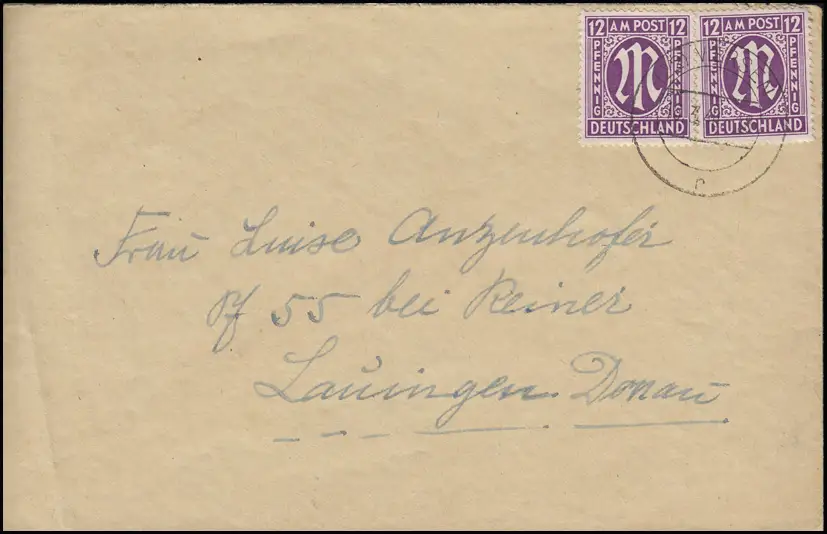 12 AM POST 12 12 AM POST 12
PFENNIG M PFENNIG PFENNIG M PFENNIG
DEUTSCHLAND DEUTSCHLAND
Frau Luise Anzenhofer
Pf 55 bei Reiner
Lauingen Donau